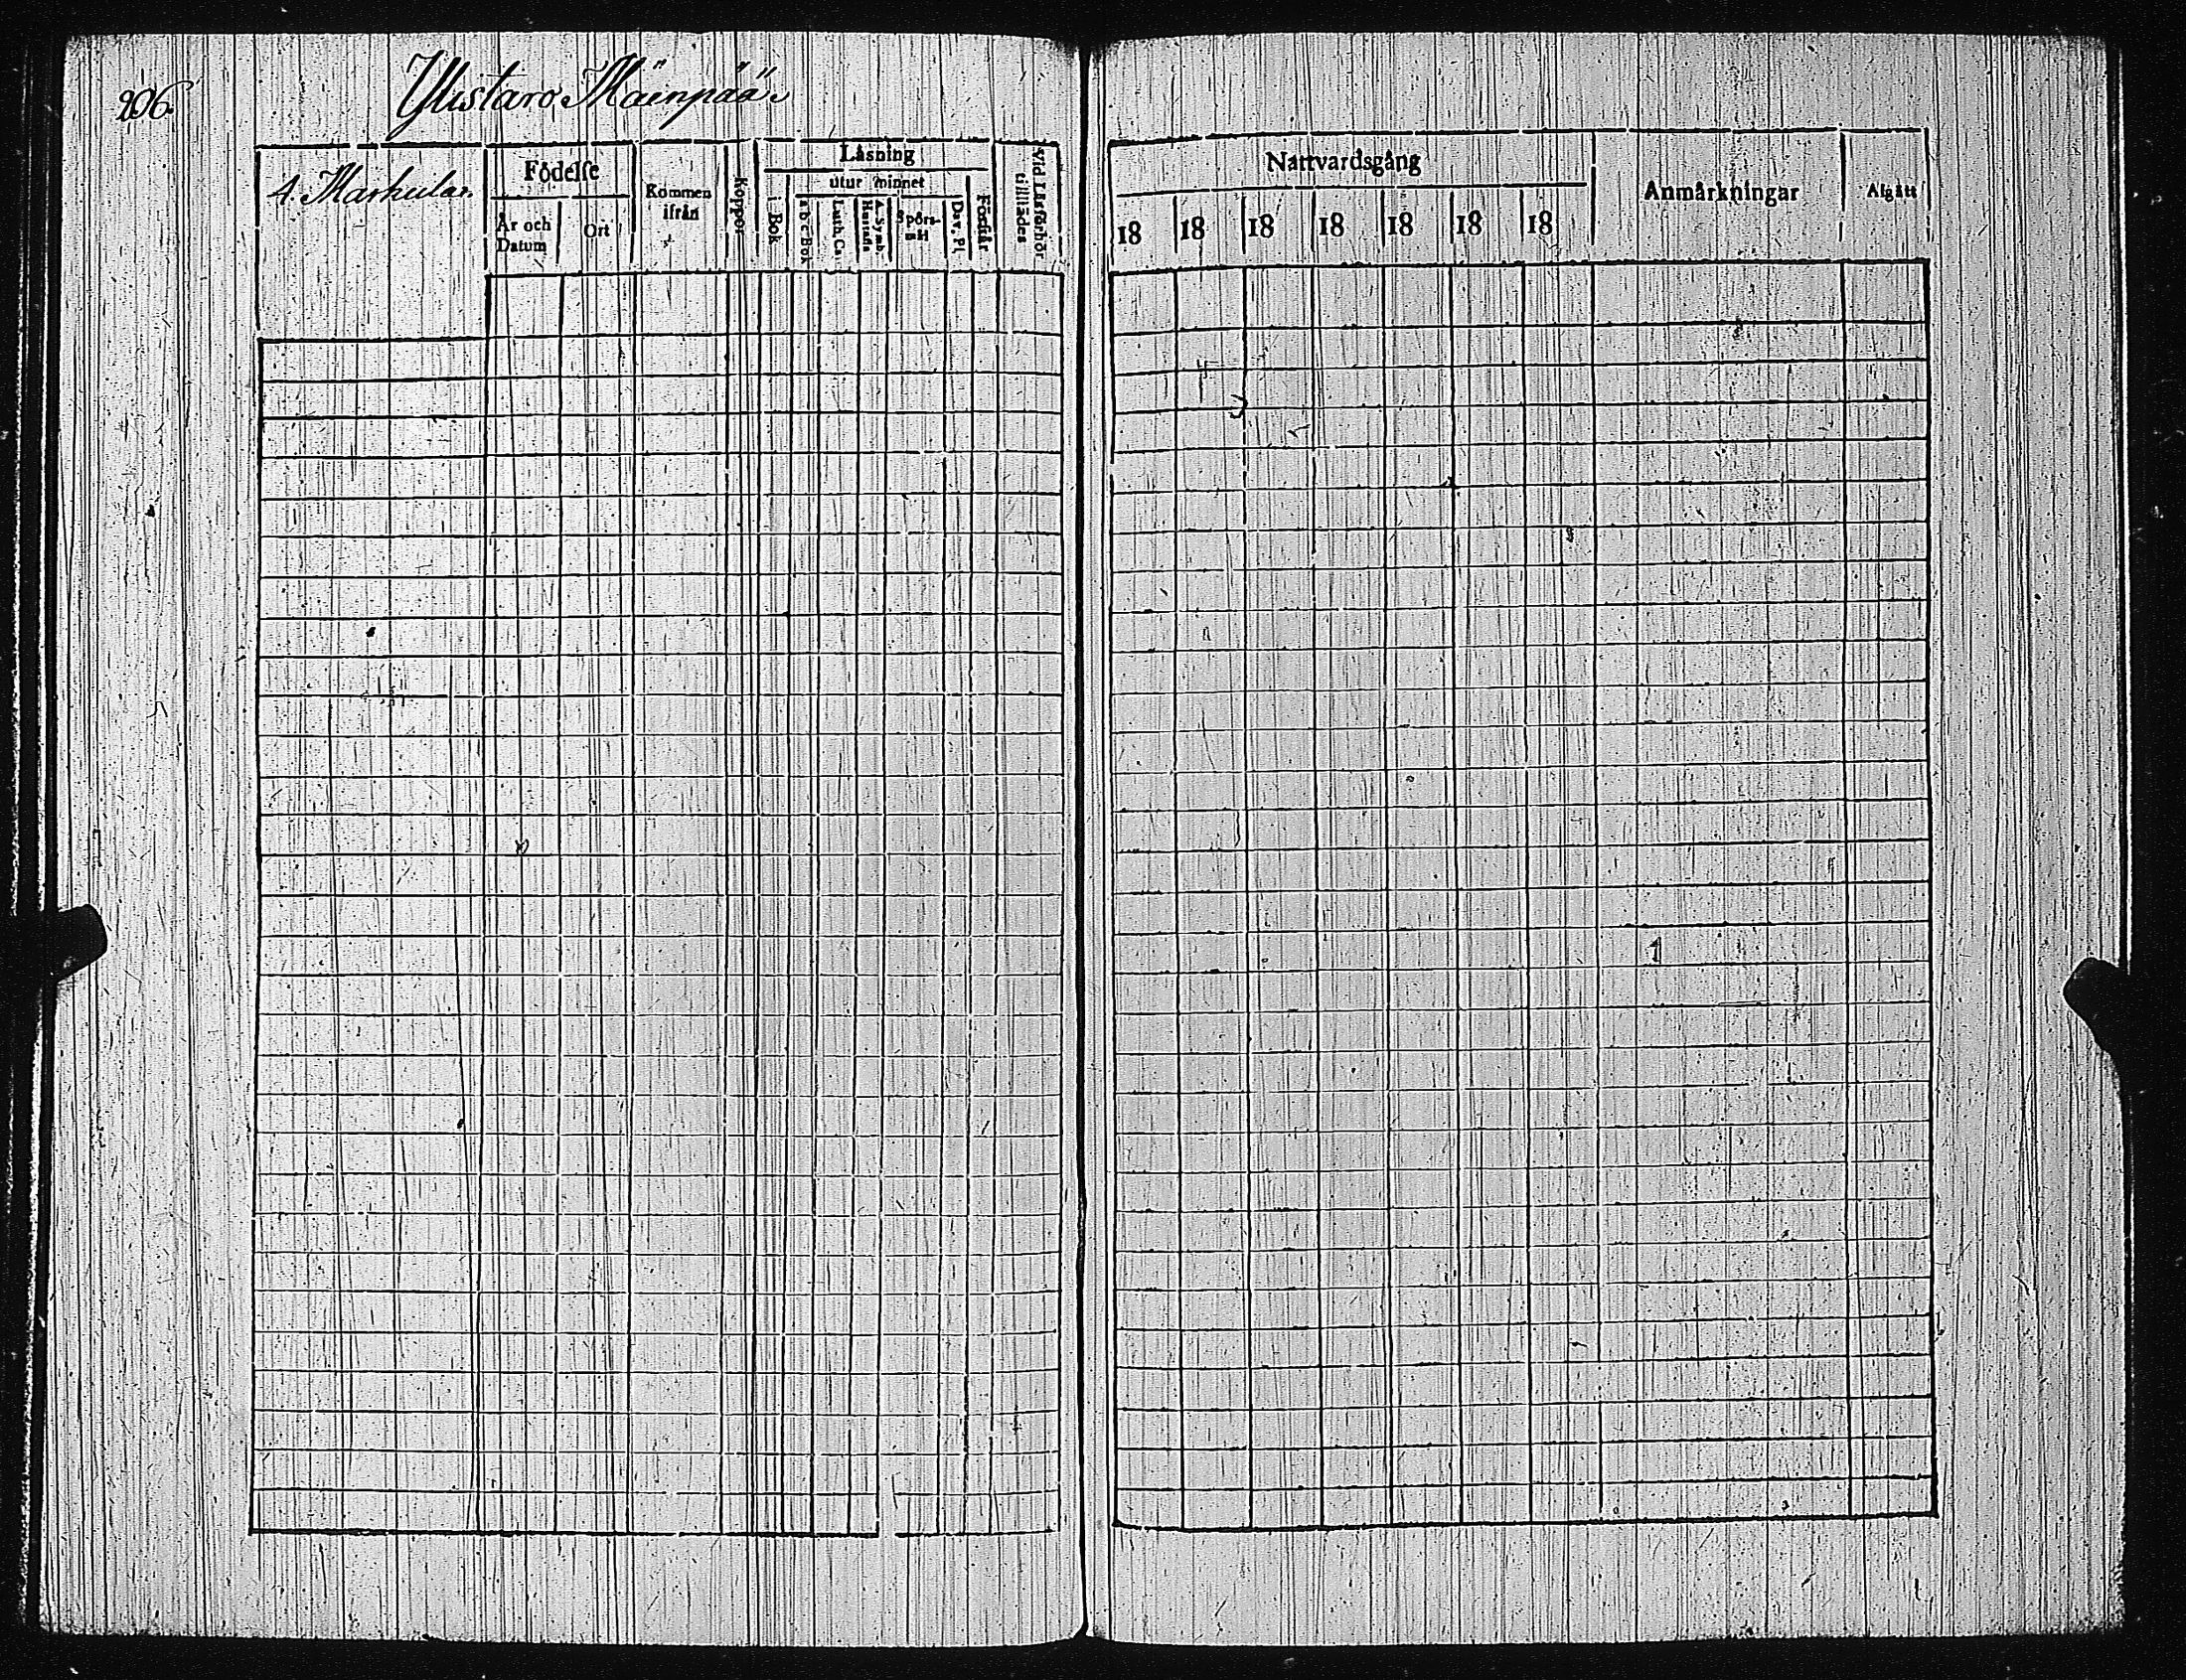 296.
Ylistaro Mäenpää.
4. Markula.
Födelse
År och Datum
Ort
Kommen ifrån
Koppor
Läsning
i Bok
utur minnet
a b c Bok
Luth. Ca.
A. Symb. Hustafl.
Spörsmål
Dav. Ps.
Förstår
Vid Läsförhör tillstädes
Nattvardsgång
18 18 18 18 18 18 18
Anmärkningar
Afgått